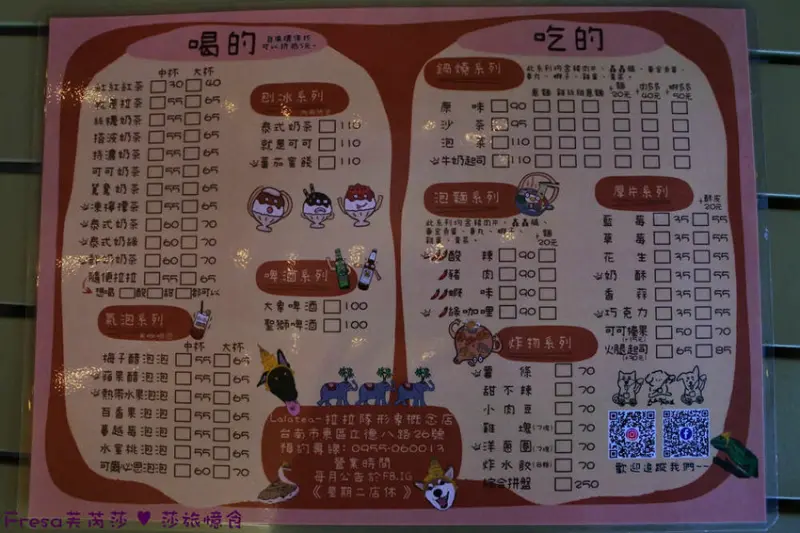 喝的
自備環保杯
可以折抵5元。
中杯 大杯
紅紅紅茶 30 40
拉茶 55 65
絲襪奶茶 55 65
搭波奶茶 55 65
持濃奶茶 55 65
可可奶茶 55 65
鴛鴦奶茶 55 65
凍檸檬茶 55 65
泰式奶茶 60 70
泰式奶綠 60 70
奶茶 60 70
隨便拉拉 55 65
想喝 酸 甜 都可以
氣泡系列
中杯 大杯
梅子醋泡泡 55 65
蘋果醋泡泡 55 65
熱帶水果泡泡 55 65
百香果泡泡 55 65
蔓越莓泡泡 55 65
水蜜桃泡泡 55 65
可爾心思泡泡 60 70
刨冰系列
泰式奶茶 110
就是可可 110
蕃茄蜜餞 110
啤酒系列
大象啤酒 100
聖獅啤酒 100
吃的
鍋燒系列
意麵 雞絲 隨意麵 +麵20元 +肉40元 +蝦50元
原味 90
沙茶 95
泡菜 110
牛奶起司 110
泡麵系列
+麵
20元
酸辣 90
豬肉 90
蝦味 90
綠咖哩 90
厚片系列
+酥皮
20元
藍莓 35 55
草莓 35 55
花生 35 55
奶酥 35 55
香蒜 35 55
巧克力 35 55
可可榛果 50 70
火腿起司 65 85
炸物系列
薯條 70
甜不辣 70
小肉豆 70
雞塊 70
洋蔥圈 70
炸水餃 70
綜合拼盤 250
歡迎追蹤我們~~
Lalatea-拉拉隊形象概念店
台南市東區立德八路26號
預約專線：0955-060013
營業時間
每月公告於FB.IG
《星期二店休》
Fresa芙芮莎 ♥ 莎旅憶食